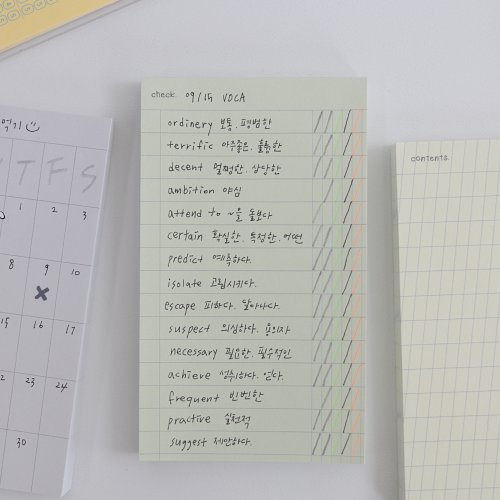 먹기
T F S
1 2 3
8 9 10
15 16 17
23 24
30
check. 09/15 VOCA
ordinery 보통, 평범한
terrific 아주좋은, 훌륭한
decent 멀쩡한, 상당한
ambition 야심
attend to ~을 돌보다
certain 확실한, 특정한, 어떤
predict 예측하다.
isolate 고립시키다.
escape 피하다. 달아나다.
suspect 의심하다. 용의자
necessary 필요한, 필수적인
achieve 성취하다. 얻다.
frequent 빈번한
practive 실천적
suggest 제안하다.
contents.